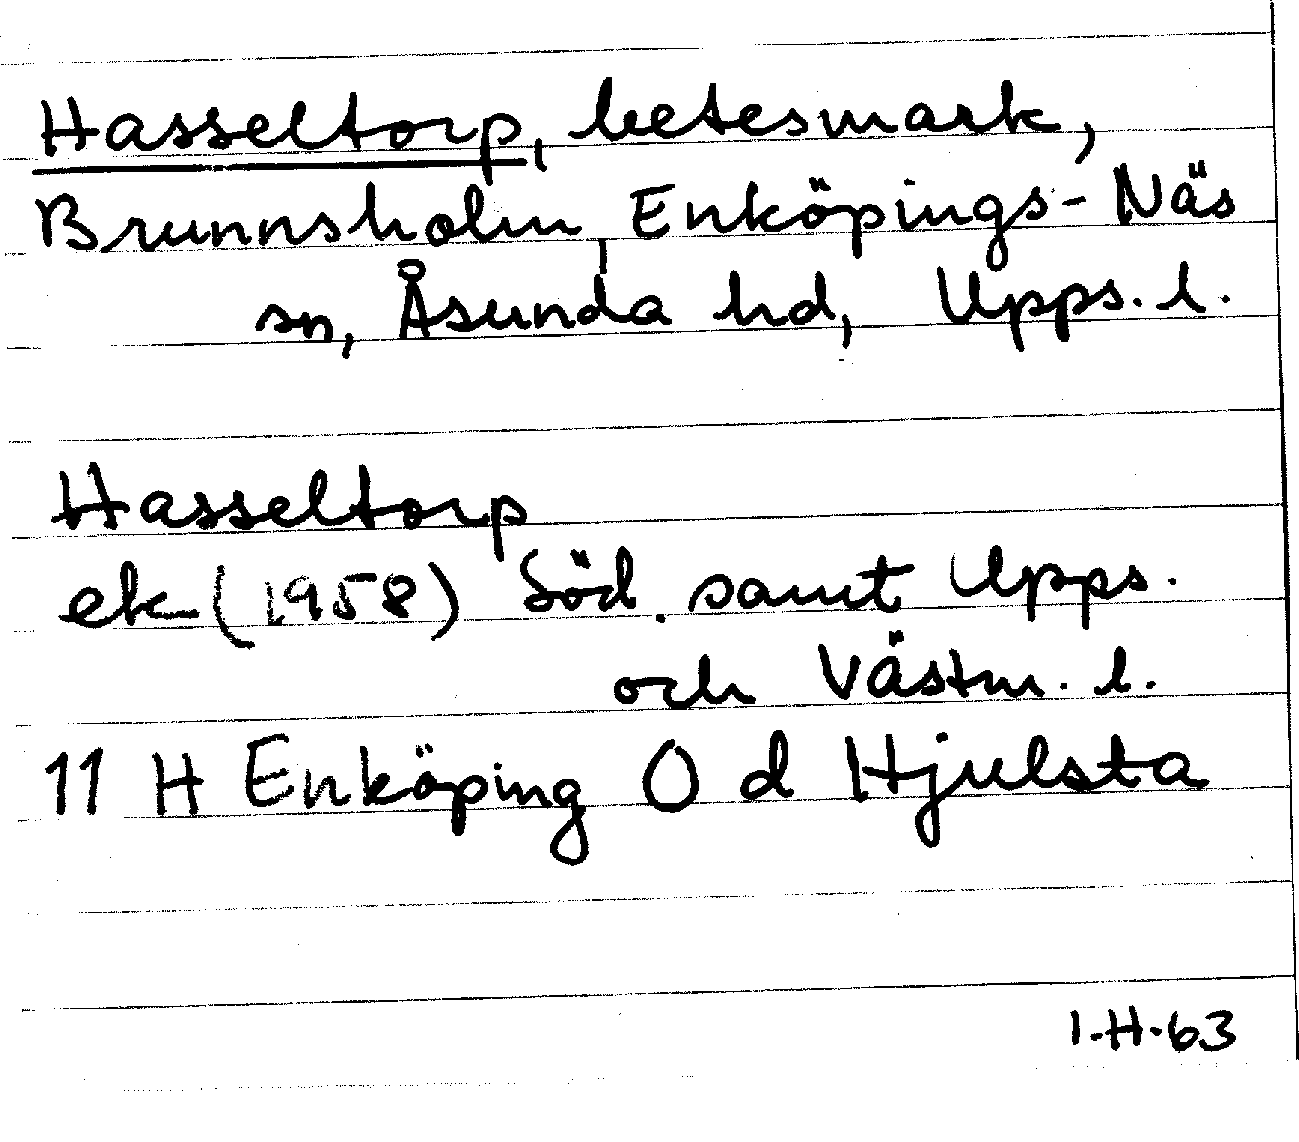 Hasseltorp, betesmark,
Brunnsholm, Enköpings-Näs
sn, Åsunda hd, Upps. l.
Hasseltorp
ek (1958) Söd. samt Upps.
och Västm. l.
11 H Enköping O d Hjulsta
I.H.63